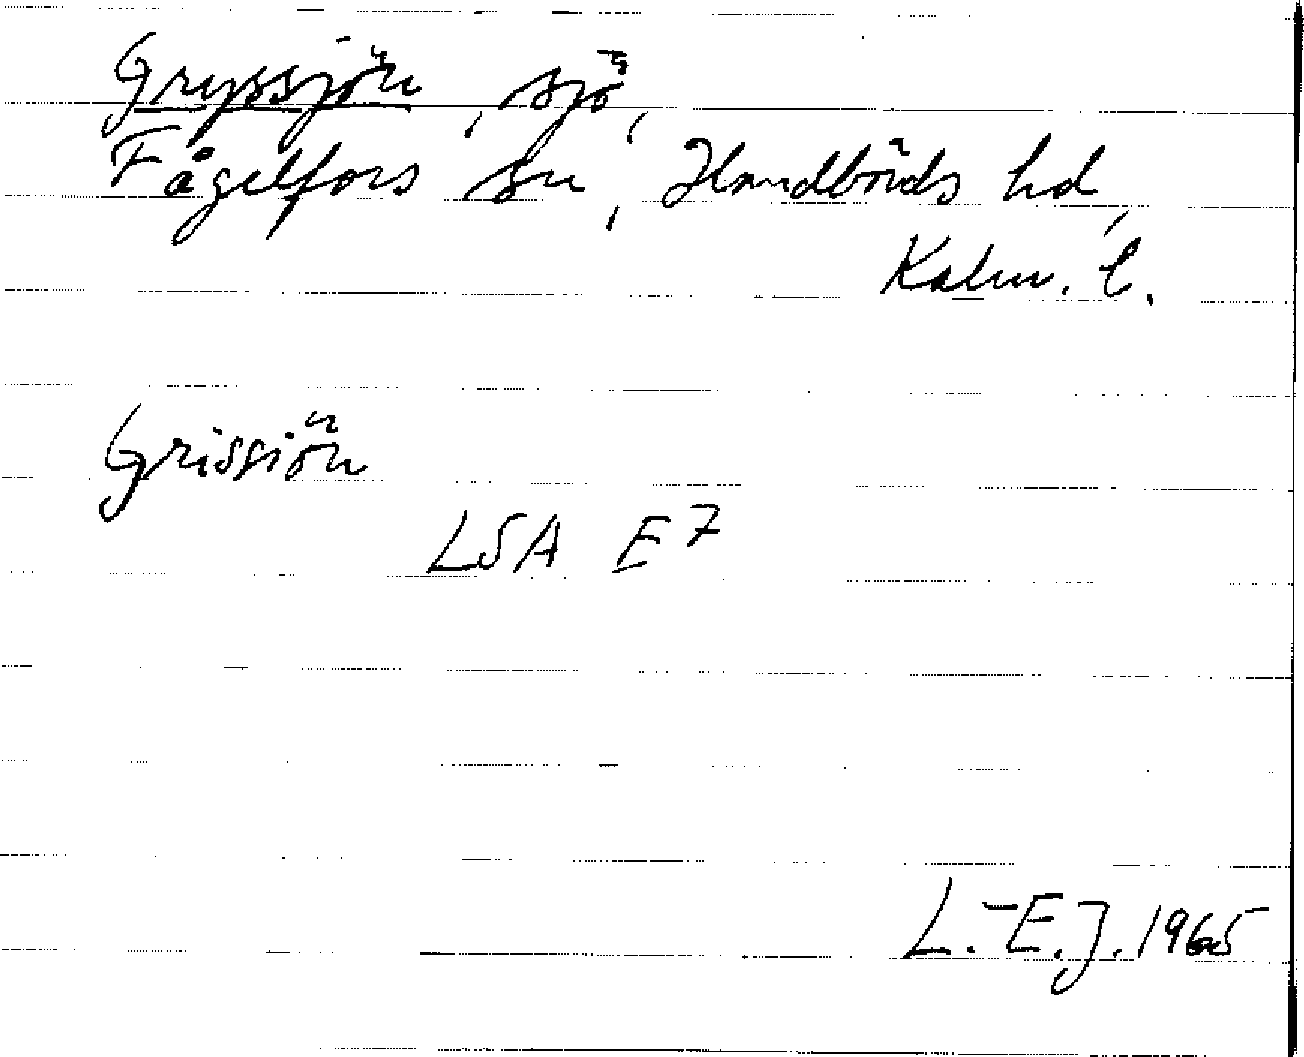 Gryssjön, sjö,
Fågelfors sn, Handbörds hd,
Kalm. l.
Grissiön
LSA E7
L.-E.J. 1965